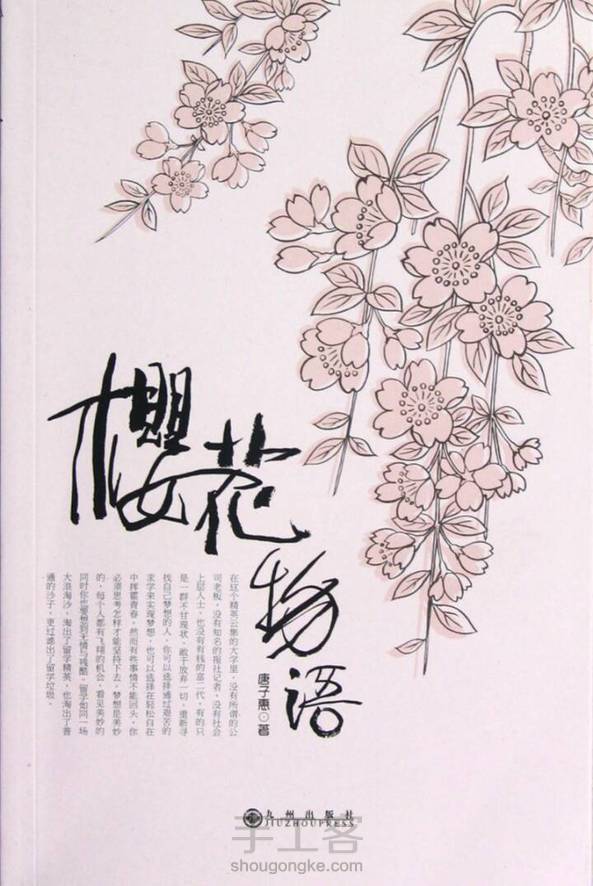 櫻花
物语
唐子惠◎著
在这个精英云集的大学里，没有所谓的公
司老板，没有知名的报社记者，没有社会
上层人士，也没有有钱的富二代，有的只
是一群不甘现状，敢于放弃一切，重新寻
找自己梦想的人，你可以选择通过艰苦的
求学来实现梦想，也可以选择在轻松自在
中挥霍青春，然而有些事情不能回头，你
必须思考怎样才能坚持下去，梦想是美妙
的，每个人都有飞翔的机会，看见美妙的
同时你也要想到无情与残酷，留学如同一场
大浪淘沙，淘出了留学精英，也淘出了普
通的沙子，更过滤出了留学垃圾。
九州出版社
JIUZHOUPRESS
手工客
shougongke.com